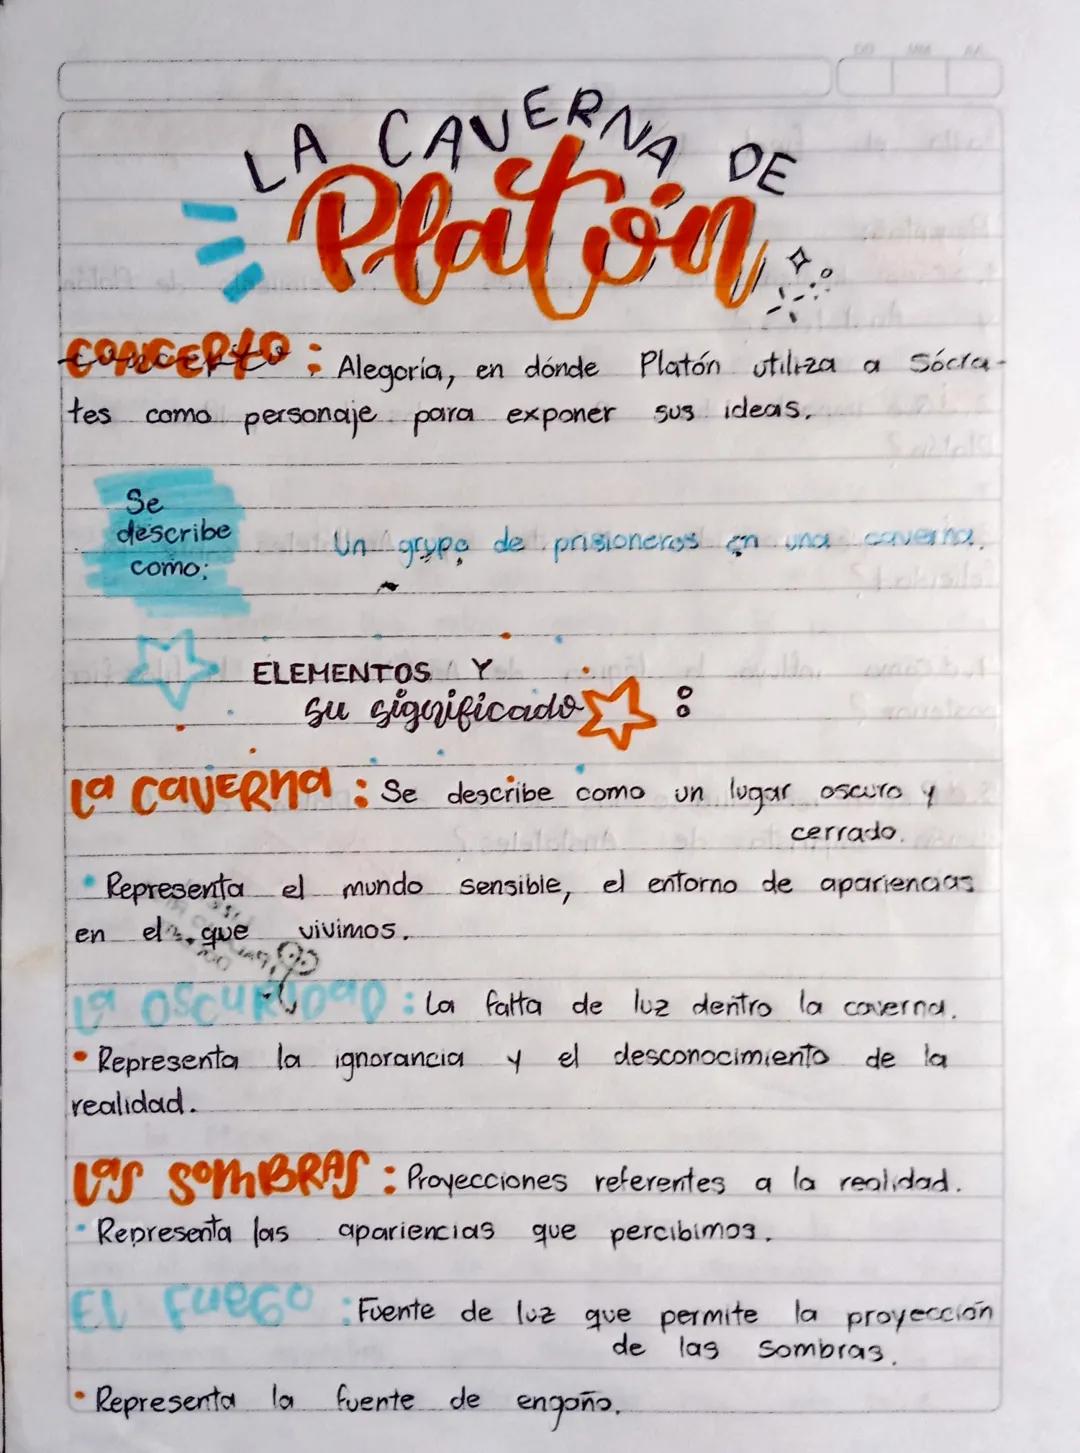 LA CAVERNA DE
Platón
CONCEPTO : Alegoría, en dónde Platón utiliza a Sócra-
tes como personaje para exponer sus ideas.
Se
describe
como:
Un grupo de prisioneros en una caverna.
ELEMENTOS Y
su significado :
La CAVERNA : Se describe como un lugar oscuro y
cerrado.
• Representa el mundo sensible, el entorno de apariencias
en el que vivimos.
La OSCURIDAD : La falta de luz dentro la caverna.
• Representa la ignorancia y el desconocimiento de la
realidad.
Las SOMBRAS : Proyecciones referentes a la realidad.
• Representa las apariencias que percibimos.
El FUEGO : Fuente de luz que permite la proyección
de las sombras.
• Representa la fuente de engaño.